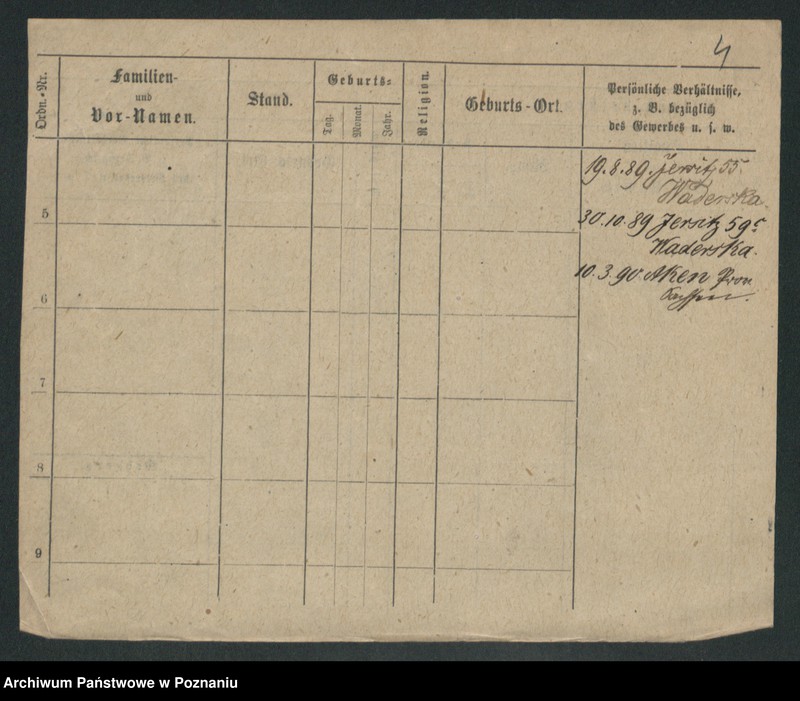 4
Ordn.-Nr.
Familien-
und
Vor-Namen.
Stand.
Geburts-
Tag.
Monat.
Jahr.
Religion.
Geburts-Ort.
Persönliche Verhältnisse,
z. B. bezüglich
des Gewerbes u. s. w.
19.8.89. Jersitz 55.
Waderska.
5
30.10.89 Jersitz 59c
Waderska.
10.3.90. Aken Prov.
Sachsen.
6
7
8
9
Archiwum Państwowe w Poznaniu